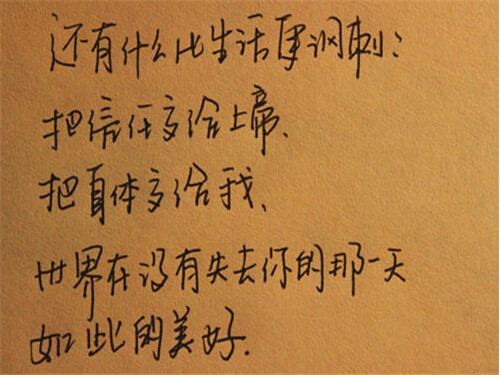 还有什么比生活更讽刺?
把信任交给上帝、
把身体交给我、
世界在没有失去你的那一天
如此的美好.